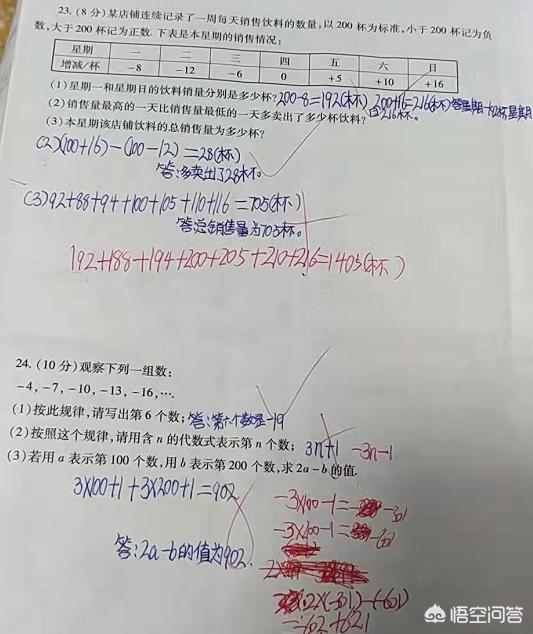 23. (8 分) 某店铺连续记录了一周每天销售饮料的数量, 以 200 杯为标准, 小于 200 杯记为负
数, 大于 200 杯记为正数. 下表是本星期的销售情况:
星期 一 二 三 四 五 六 日
增减/杯 -8 -12 -6 0 +5 +10 +16
(1) 星期一和星期日的饮料销量分别是多少杯? 200-8=192(杯) 200+16=216(杯)
(2) 销售量最高的一天比销售量最低的一天多卖出了多少杯饮料? 日216杯。
(3) 本星期该店铺饮料的总销售量为多少杯?
(2)(100+16)-(100-12)=28(杯)
答:多卖出了28杯。
(3)92+88+94+100+105+110+116=705(杯)
答:总销售量为705杯。
192+188+194+200+205+210+216=1405(杯)
24. (10 分) 观察下列一组数:
-4, -7, -10, -13, -16, ….
(1) 按此规律, 请写出第 6 个数; 答:第六个数是-19
(2) 按照这个规律, 请用含 n 的代数式表示第 n 个数; 3n+1 -3n-1
(3) 若用 a 表示第 100 个数, 用 b 表示第 200 个数, 求 2a-b 的值.
3×100+1+3×200+1=902
-3×100-1= -301
-3×100-1= -601
答:2a-b的值为902.
2×(-301)-(-601)
=-602+621
悟空问答